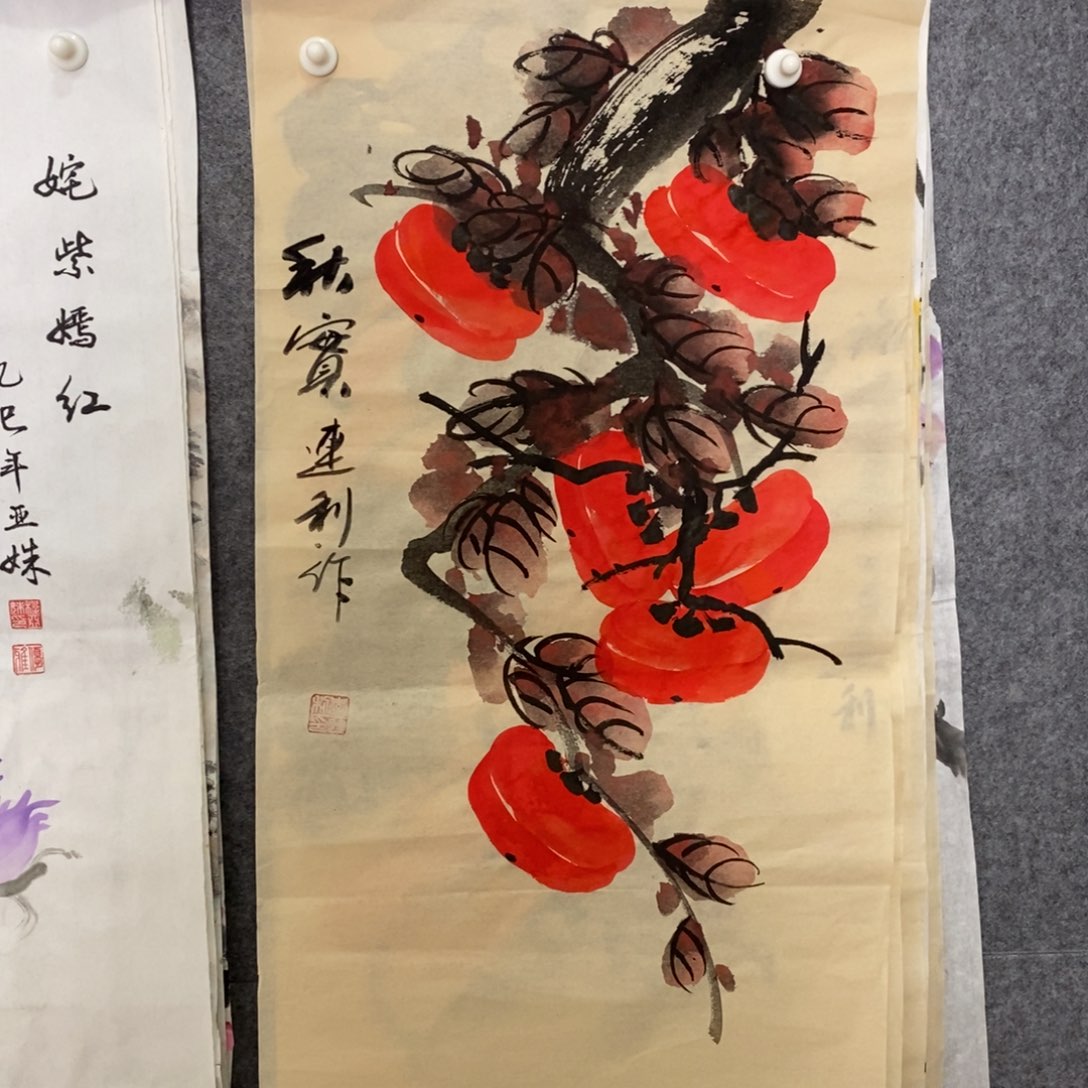 秋實連利作
姹紫嫣红
乙巳年亚姝